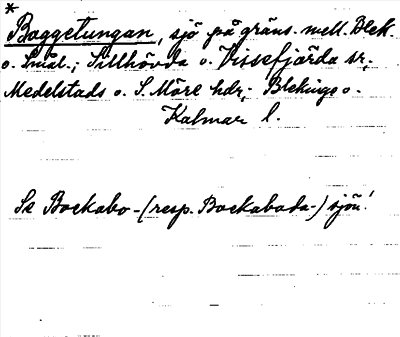 *
Baggetungan, sjö på gräns. mell. Blek.
o. Smål.; Sillhövda o. Vissefjärda sr,
Medelstads o. S. Möre hdr; Blekinge o.
Kalmar l.
Se Bockabo- (resp. Bockaboda-) sjön!